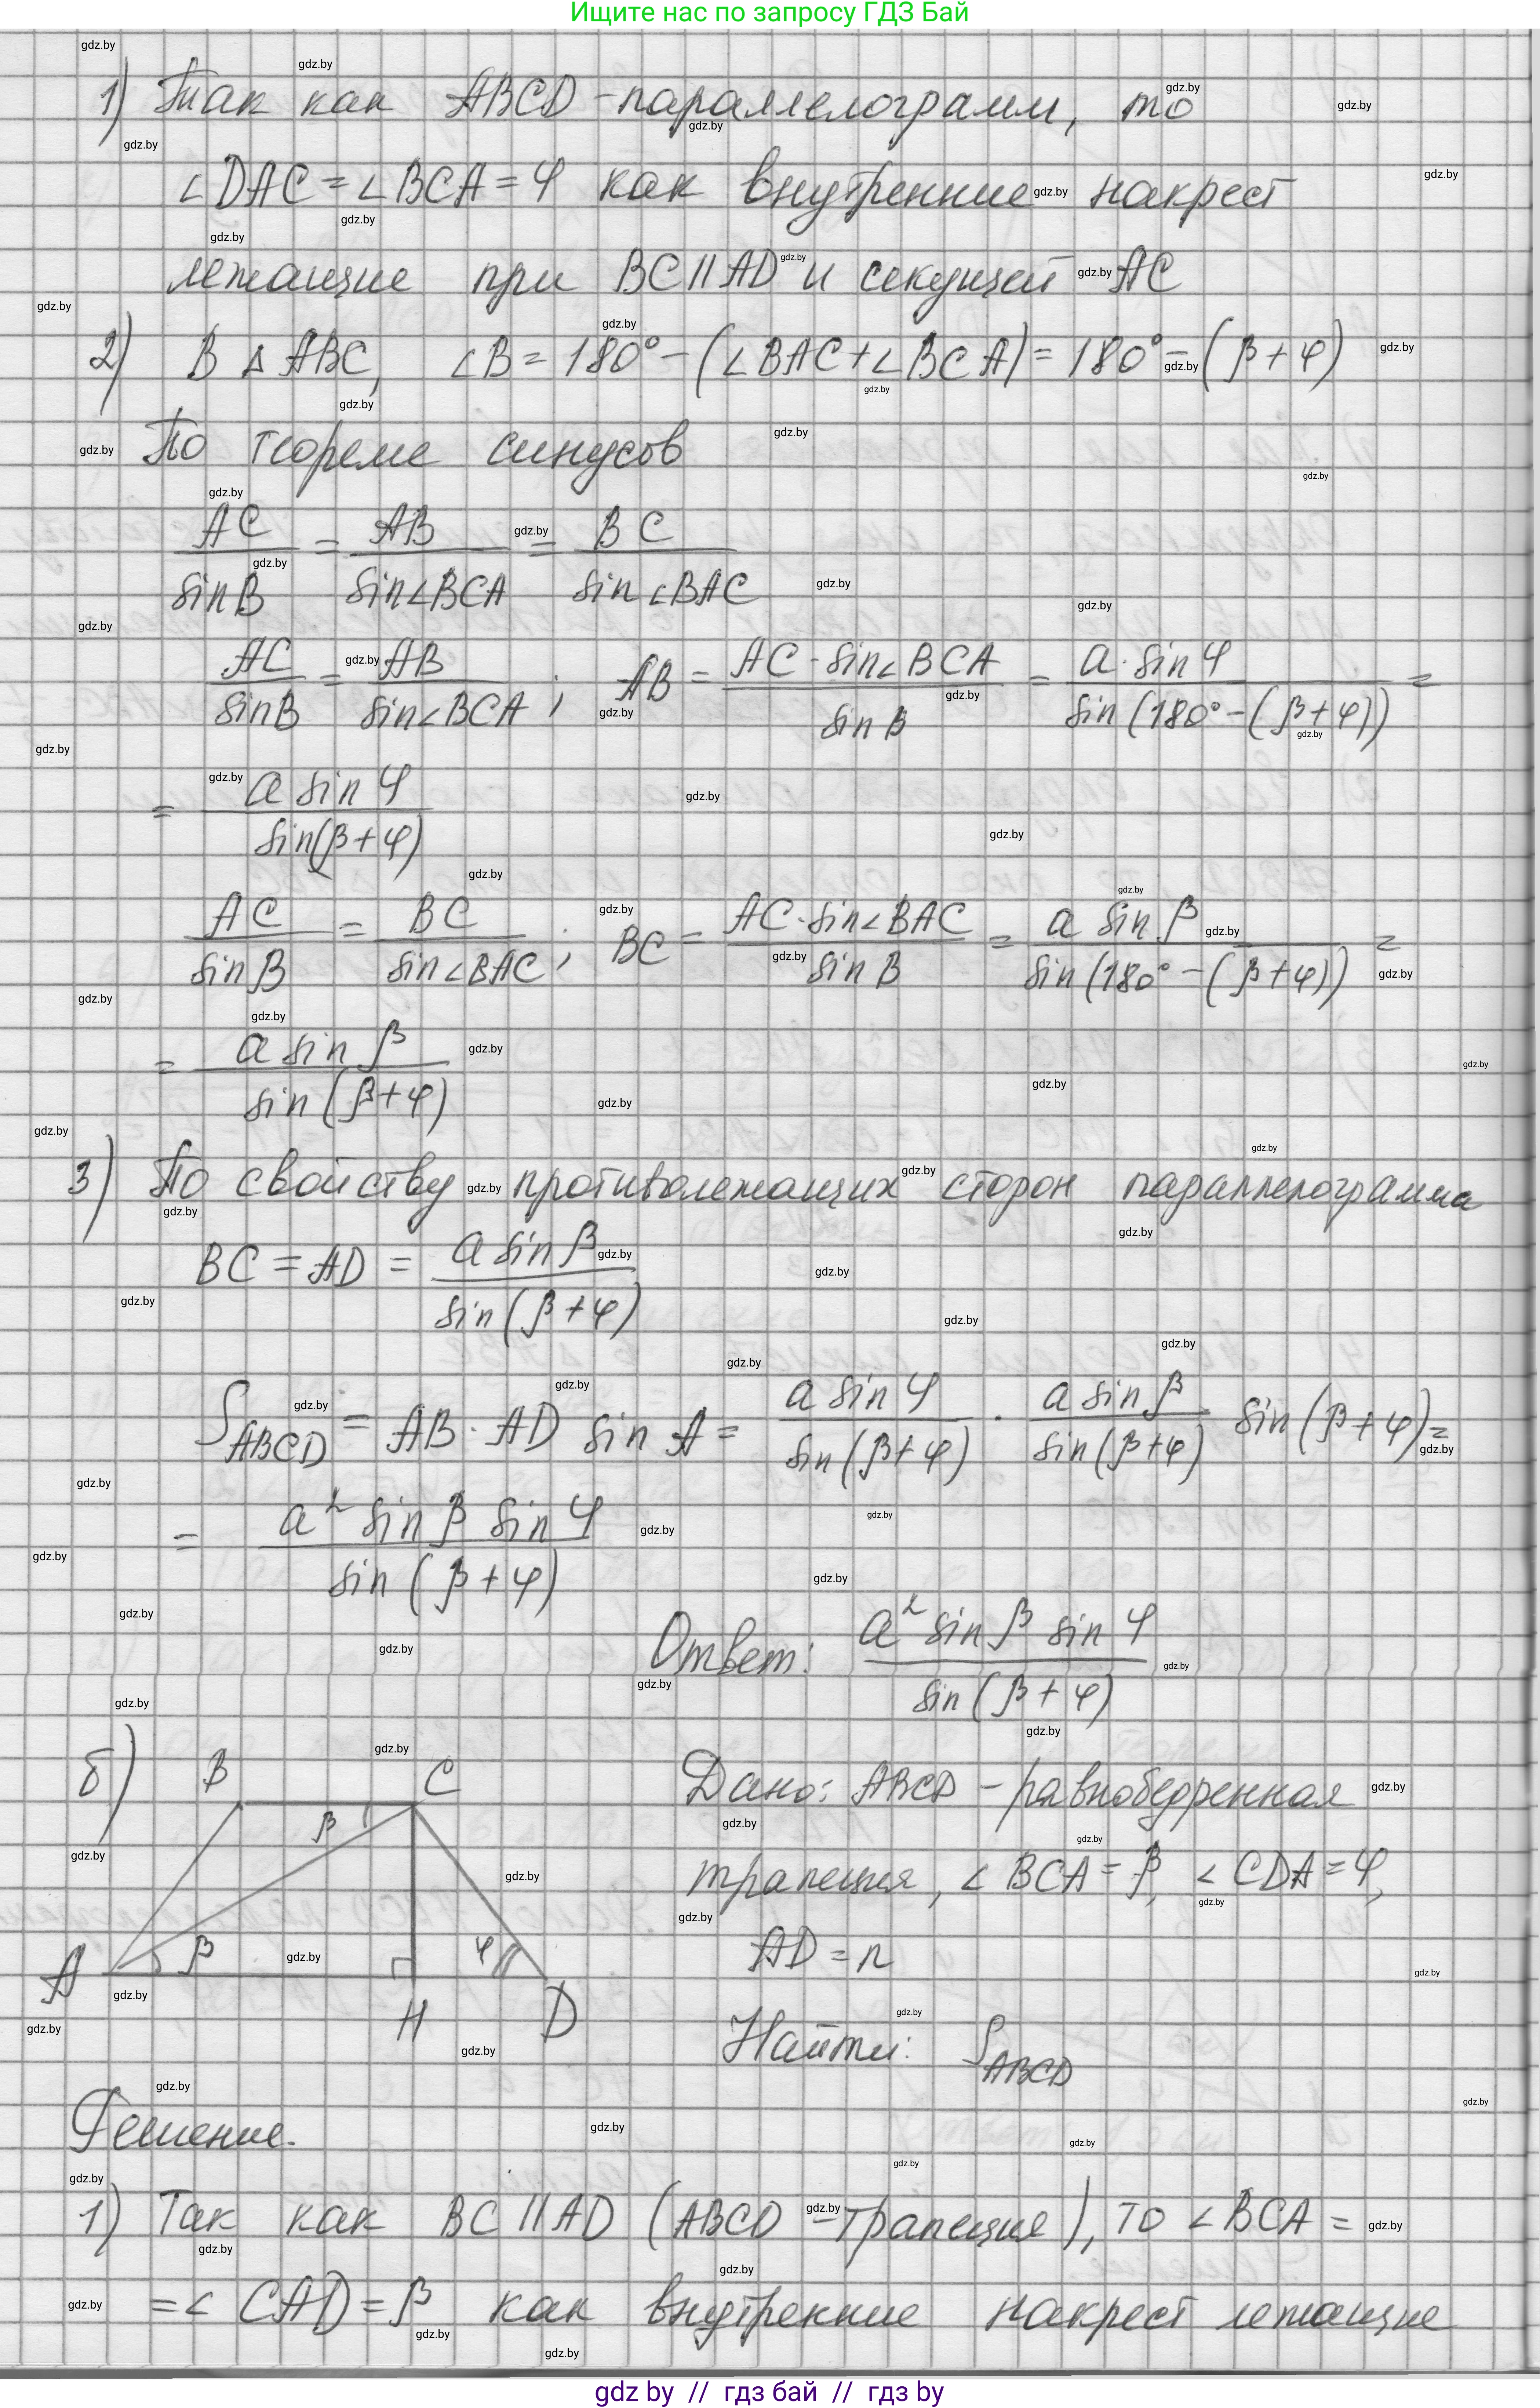 Ищите нас по запросу ГДЗ Бай
1) Так как ABCD - параллелограмм, то
∠DAC = ∠BCA = φ как внутренние накрест
лежащие при BC || AD и секущей AC
2) В △ ABC, ∠B = 180° - (∠BAC + ∠BCA) = 180° - (β + φ)
По теореме синусов
AC/sin B = AB/sin∠BCA = BC/sin∠BAC
AC/sin B = AB/sin∠BCA ; AB = AC · sin∠BCA/sin B = a · sin φ/sin(180° - (β + φ)) =
= a sin φ/sin(β + φ)
AC/sin B = BC/sin∠BAC ; BC = AC · sin∠BAC/sin B = a sin β/sin(180° - (β + φ)) =
= a sin β/sin(β + φ)
3) По свойству противолежащих сторон параллелограмма
BC = AD = a sin β/sin(β + φ)
S ABCD = AB · AD sin A = a sin φ/sin(β + φ) · a sin β/sin(β + φ) sin(β + φ) =
= a² sin β sin φ/sin(β + φ)
Ответ: a² sin β sin φ/sin(β + φ)
б) B C Дано: ABCD - равнобедренная
β
трапеция, ∠BCA = β, ∠CDA = φ,
A β φ AD = n
H D
Найти: S ABCD
Решение.
1) Так как BC || AD (ABCD - трапеция), то ∠BCA =
= ∠CAD = β как внутренние накрест лежащие
gdz by // гдз бай // гдз by